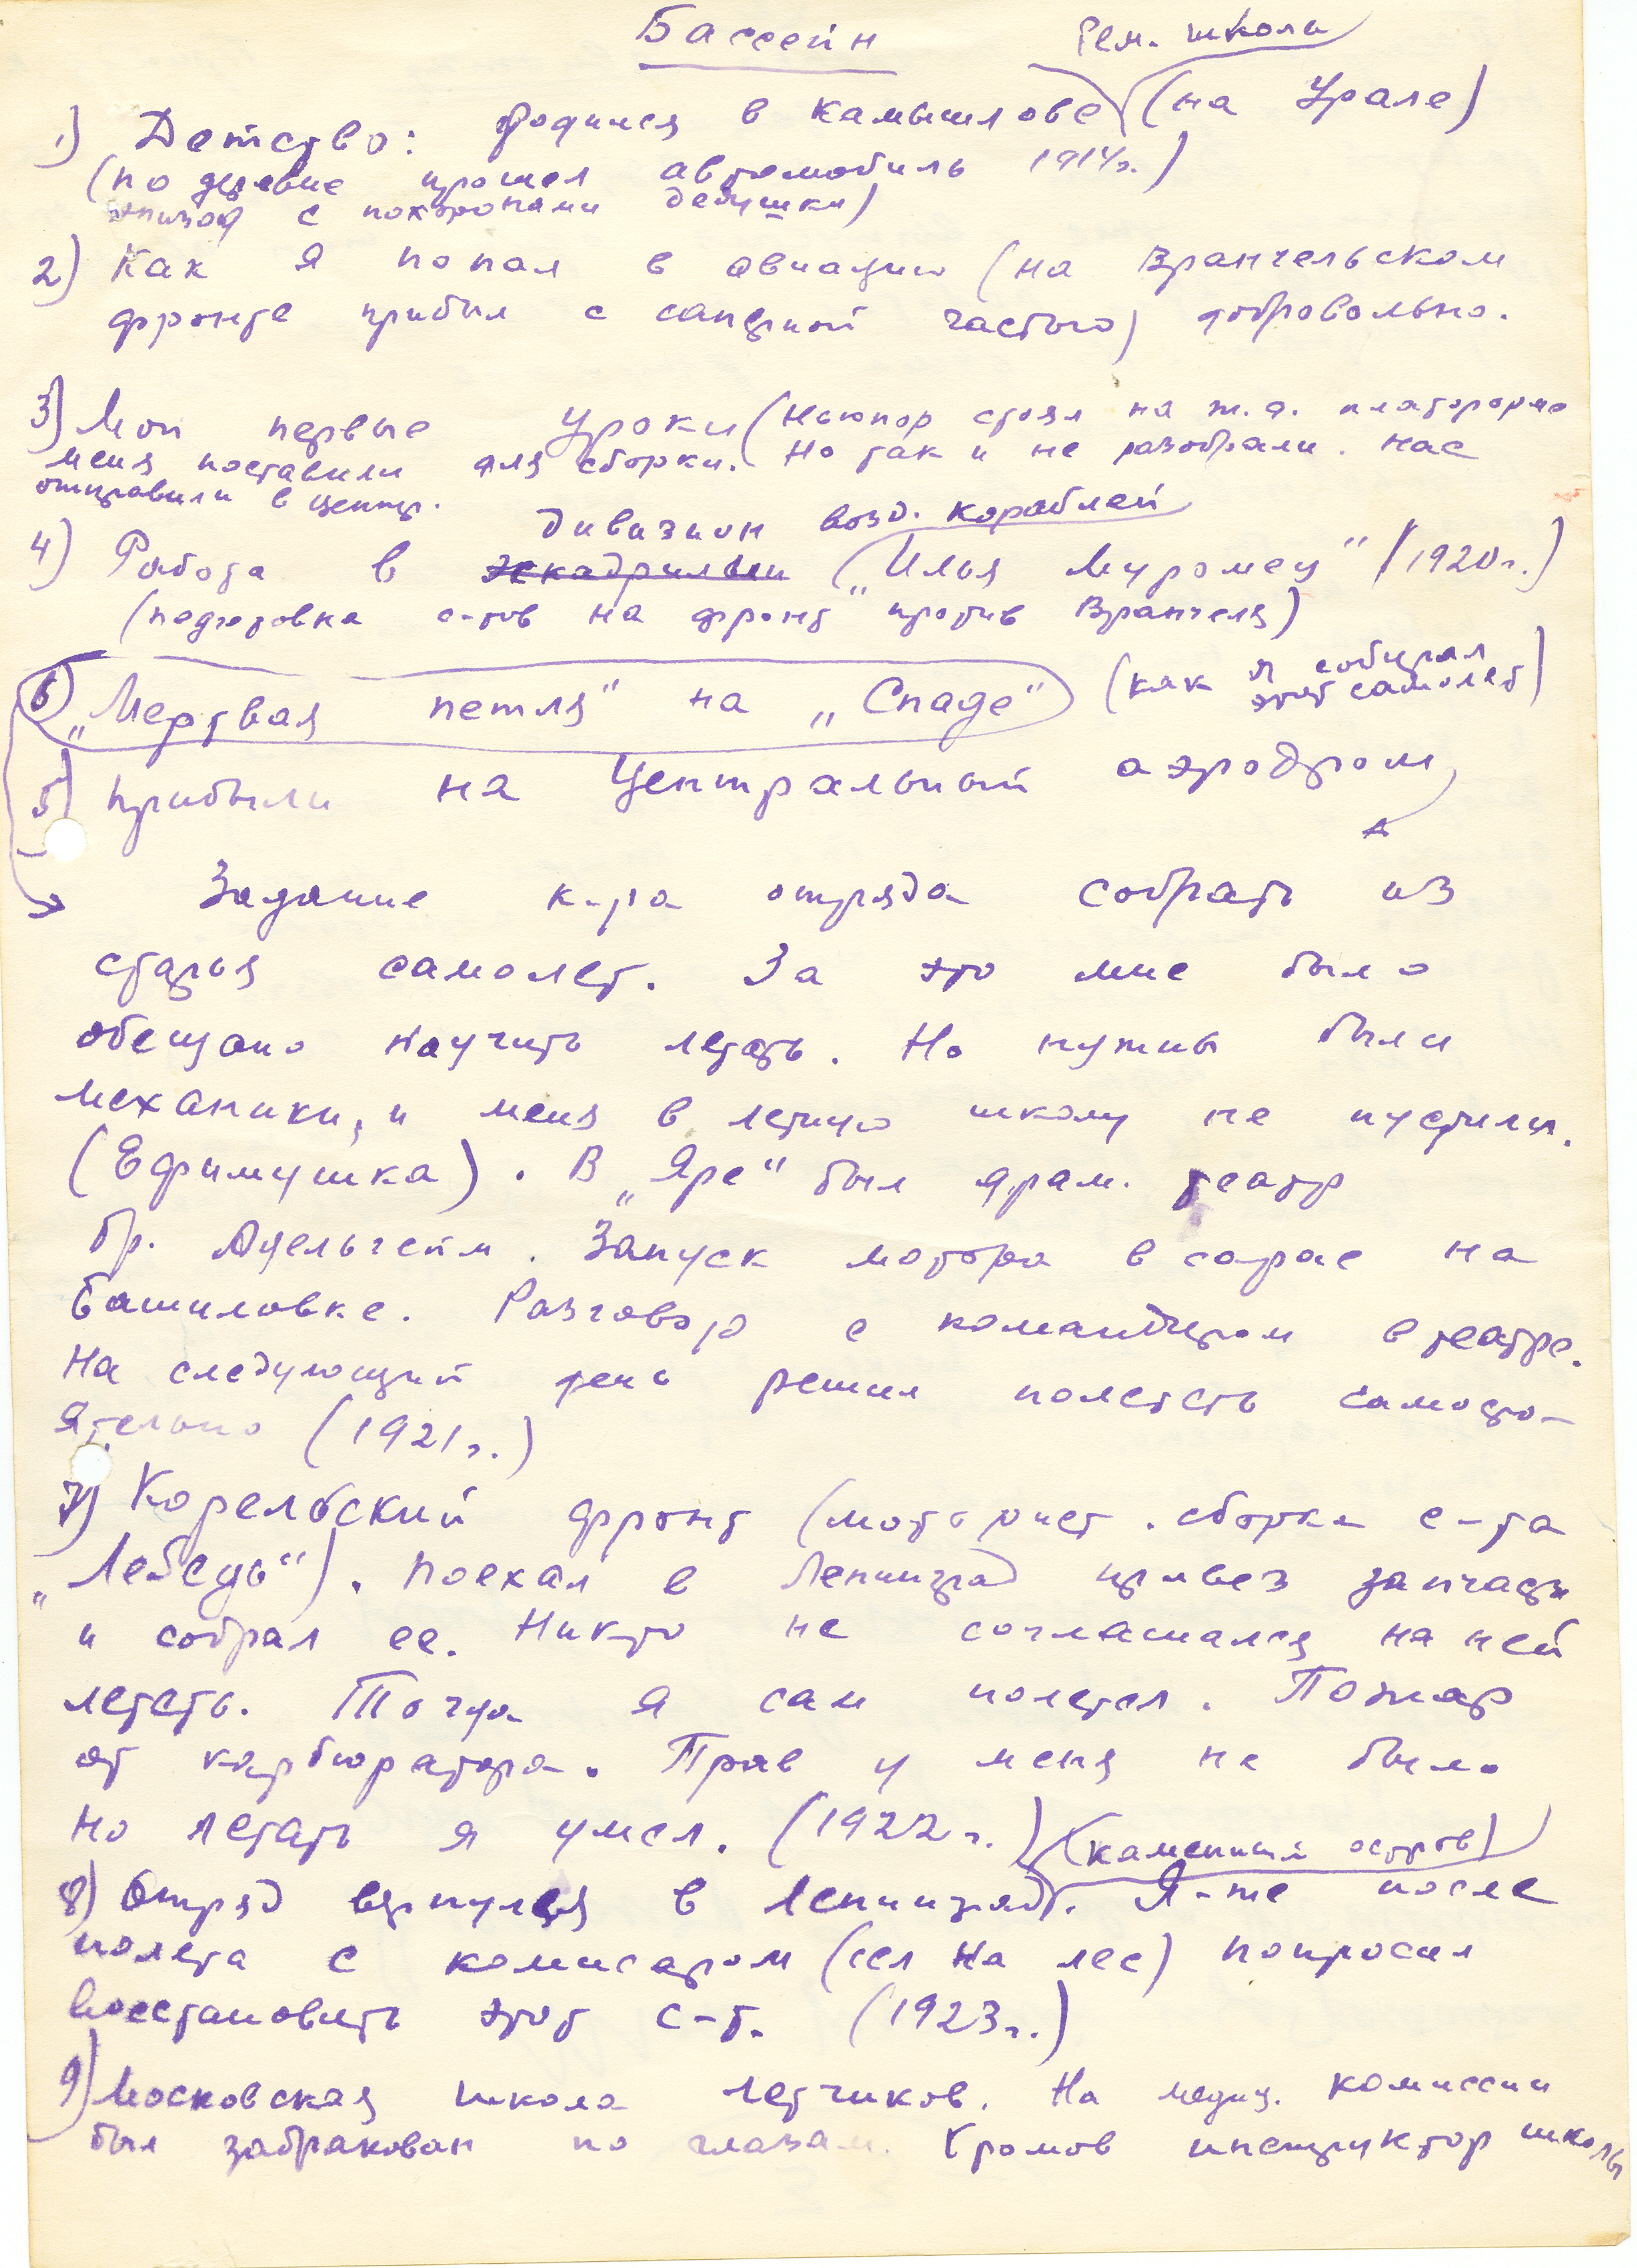 Бассейн
Рем. школа
1) Детство: родился в Камышлове (на Урале)
(по деревне прошел автомобиль 1914г.)
эпизод с похоронами дедушки)
2) Как я попал в авиацию (на Врангельском
фронте прибыл с саперной частью) добровольно.
3) Мои первые уроки (Ньюпор стоял на ж.д. платформе
меня поставили для сборки. Но так и не разобрали. Нас
отправили в центр.
дивизион возд. кораблей
4) Работа в эскадрильи („Илья Муромец“ (1920г.)
(подготовка с-тов на фронт против Врангеля)
6) „Мертвая петля“ на „Спаде“ (как я собирал
этот самолет)
5) Прибыли на Центральный аэродром,
Задание к-ра отряда собрать из
старья самолет. За это мне было
обещано научить летать. Но нужны были
механики, и меня в летную школу не пустили.
(Ефимушка). В „Яре“ был драм. театр
бр. Адельгейм. Запуск мотора в сарае на
Башиловке. Разговор с командиром в театре.
На следующий день решил полететь самосто-
ятельно (1921г.)
7) Корельский фронт (моторист. сборка с-та
„Лебедь“). Поехал в Ленинград привез запчасти
и собрал ее. Никто не соглашался на ней
лететь. Тогда я сам полетел. Пожар
от карбюратора. Прав у меня не было
но летать я умел. (1922г.)
(Каменный остров)
8) Отряд вернулся в Ленинград. Я-же после
полета с комисаром (сел на лес) попросил
восстановить этот с-т. (1923г.)
9) Московская школа летчиков. На медиц. комиссии
был забракован по глазам. Громов инструктор школы